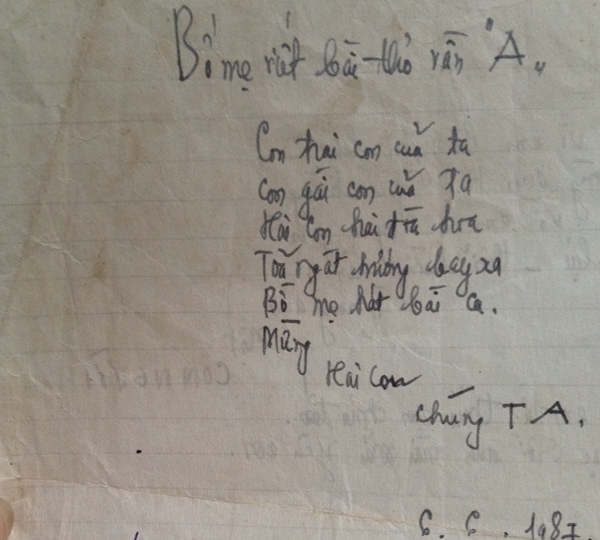 Bố mẹ viết bài thơ vần "A"
Con trai con của ta
Con gái con của ta
Hai con hai đoá hoa
Toả ngát hương bay xa
Bố mẹ hát bài ca.
Mừng
Hai con
chúng TA.
6. 6. 1987.